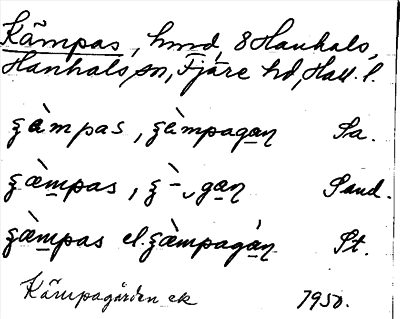 Kämpas, hmd, 8 Hanhals,
Hanhals sn, Fjäre hd, Hall. l.
ʒàmpas, ʒàmpagan Sa.
ʒæ̀mpas, ʒ-̀ gan Sand.
ʒæ̀mpas el. ʒæ̀mpagàn St.
Kämpagården ek 1950.